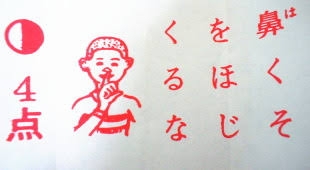 鼻はくそ
をほじ
くるな
4点